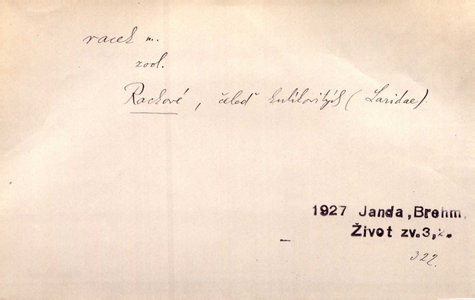 racek m.
zool.
Rackové, čeleď kulíkovitých (Laridae)
1927 Janda, Brehm,
Život zv. 3, 2.
322.